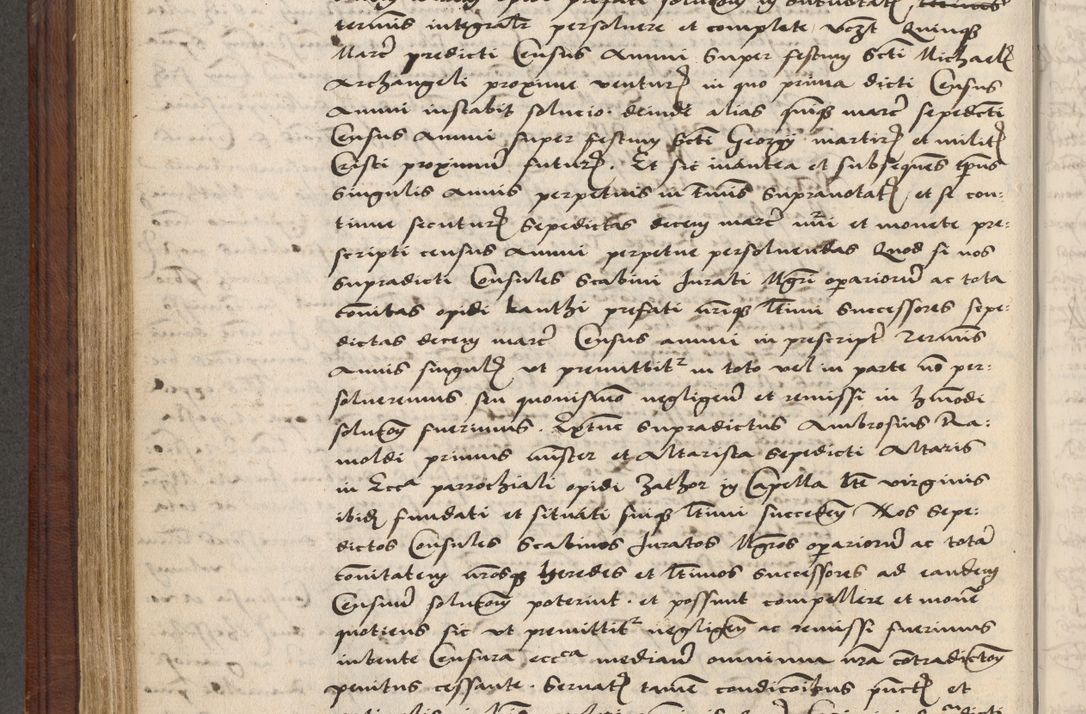 terminis integraliter persoluere et complete vczt Quinqz
Marc predicti Census Annui super festum Scti Michaelis
Archangeli proxime ventur in quo prima dicti Census
Annui instabit solucio deinde alias quinqz marc sepedicti
Census Annui super festum Scti Georgy martiris et militis
Cristi proximum futur. Et sic inantea et subsequens tpus
singulis Annis perpetuis in tminis supranotatis et se con:
tinue secutur sepedictas decem marc nri et monete pre:
scripti census Annui perpetue persoluendas Quod si nos
supradicti Consules Scabini Jurati Mgri opariorum ac tota
comitas opidi kanthi prefati nriqz ltimi successores sepe:
dictas decem marc Census annui in prescript terminis
Annis singulis vt premittitr in toto vel in parte no per:
solueremus seu quouismo negligen et remissi in hmodi
solucom fuerimus. Extunc supradictus Ambrosius Na:
moldi primus mister et Altarista sepedicti Altaris
in Ecca parrochiali opidi Zathor in Capella bte virginis
ibide fundati et situati suiqz ltimi succeden Nos sepe:
dictos Consules Scabinos Juratos Mgros opariorum ac totam
comitatem nrosqz heredes et ltimos successores ad eandem
Censuum solucom poterint. et possunt compellere et mone
quotiens sic vt premittitr negligen ac remissi fuerimus
intente Censura ecca mediante omnimna nra contradictom
penitus cessante. Seruatis tamen condicoibus punctis et